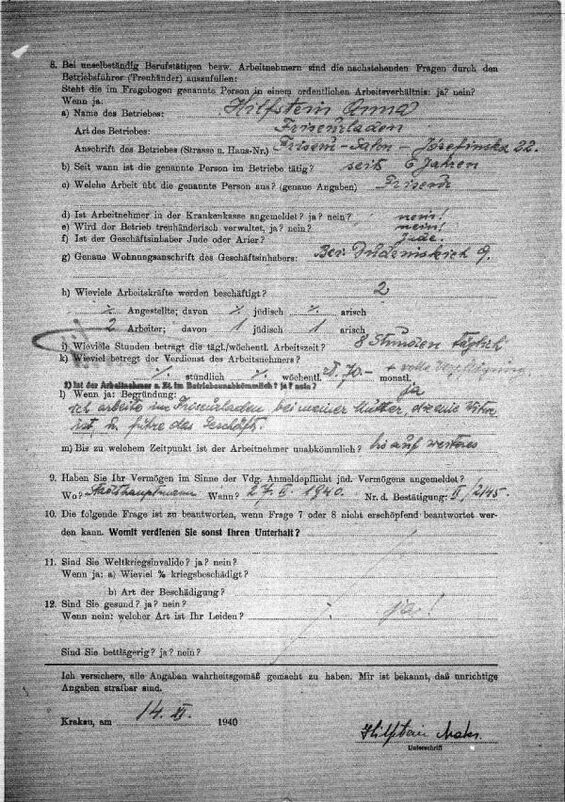 8. Bei unselbständig Berufstätigen bezw. Arbeitnehmern sind die nachstehenden Fragen durch den
Betriebsführer (Treuhänder) auszufüllen:
Steht die im Fragebogen genannte Person in einem ordentlichen Arbeitsverhältnis: ja? nein?
Wenn ja:
a) Name des Betriebes: Hilfstein Anna
Art des Betriebes: Friseurladen
Anschrift des Betriebes (Strasse u. Haus-Nr.) Friseur-Salon - Józefinska 22.
b) Seit wann ist die genannte Person im Betriebe tätig? seit 6 Jahren
c) Welche Arbeit übt die genannte Person aus? (genaue Angaben)
d) Ist Arbeitnehmer in der Krankenkasse angemeldet? ja? nein? nein!
e) Wird der Betrieb treuhänderisch verwaltet, ja? nein? nein!
f) Ist der Geschäftsinhaber Jude oder Arier? Jude.
g) Genaue Wohnungsanschrift des Geschäftsinhabers: 9.
h) Wieviele Arbeitskräfte werden beschäftigt? 2
Angestellte; davon jüdisch arisch
2 Arbeiter; davon 1 jüdisch 1 arisch
i) Wieviele Stunden beträgt die tägl./wöchentl. Arbeitszeit? 8 Stunden täglich
k) Wieviel betregt der Verdienst des Arbeitsnehmers? + volle Verpflegung
stündlich wöchentl. 70.- monatl.
l) Ist der Arbeitnehmer z. Zt. im Betriebe unabkömmlich? ja? nein?
l) Wenn ja: Begründung: ja
ich arbeite im Friseurladen bei meiner Mutter, die eine Witwe
ist, u. führe das Geschäft.
m) Bis zu welchem Zeitpunkt ist der Arbeitnehmer unabkömmlich? bis auf weiteres
9. Haben Sie Ihr Vermögen im Sinne der Vdg. Anmeldepflicht jüd. Vermögens angemeldet?
Wo? Stadthauptmann Wann? 1940. Nr. d. Bestätigung: II/2145.
10. Die folgende Frage ist zu beantworten, wenn Frage 7 oder 8 nicht erschöpfend beantwortet wer-
den kann. Womit verdienen Sie sonst Ihren Unterhalt?
11. Sind Sie Weltkriegsinvalide? ja? nein?
Wenn ja: a) Wieviel % kriegsbeschädigt?
b) Art der Beschädigung?
12. Sind Sie gesund? ja? nein? ja!
Wenn nein: welcher Art ist Ihr Leiden?
Sind Sie bettlägerig? ja? nein?
Ich versichere, alle Angaben wahrheitsgemäß gemacht zu haben. Mir ist bekannt, daß unrichtige
Angaben strafbar sind.
Krakau, am 14. XI. 1940
Hilfstein
Unterschrift